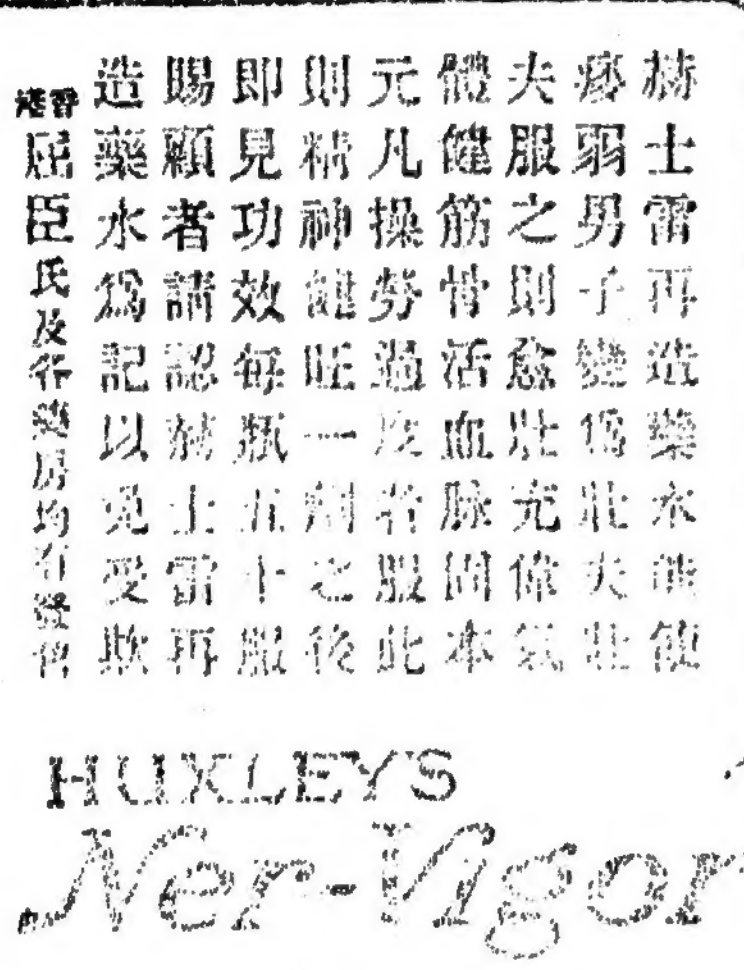 赫士雷再造藥水能使
弱男子變爲壯夫壯
夫服之則愈壯充偉氣
體健筋骨活血脉固本
元凡操勞過度者服此
則精神健旺一劑之後
即見功效每瓶五十服
賜顧者請認赫士雷再
造藥水爲記以免受欺
香港屈臣氏及各藥房均有發售
HUXLEY'S
Ner-Vigor